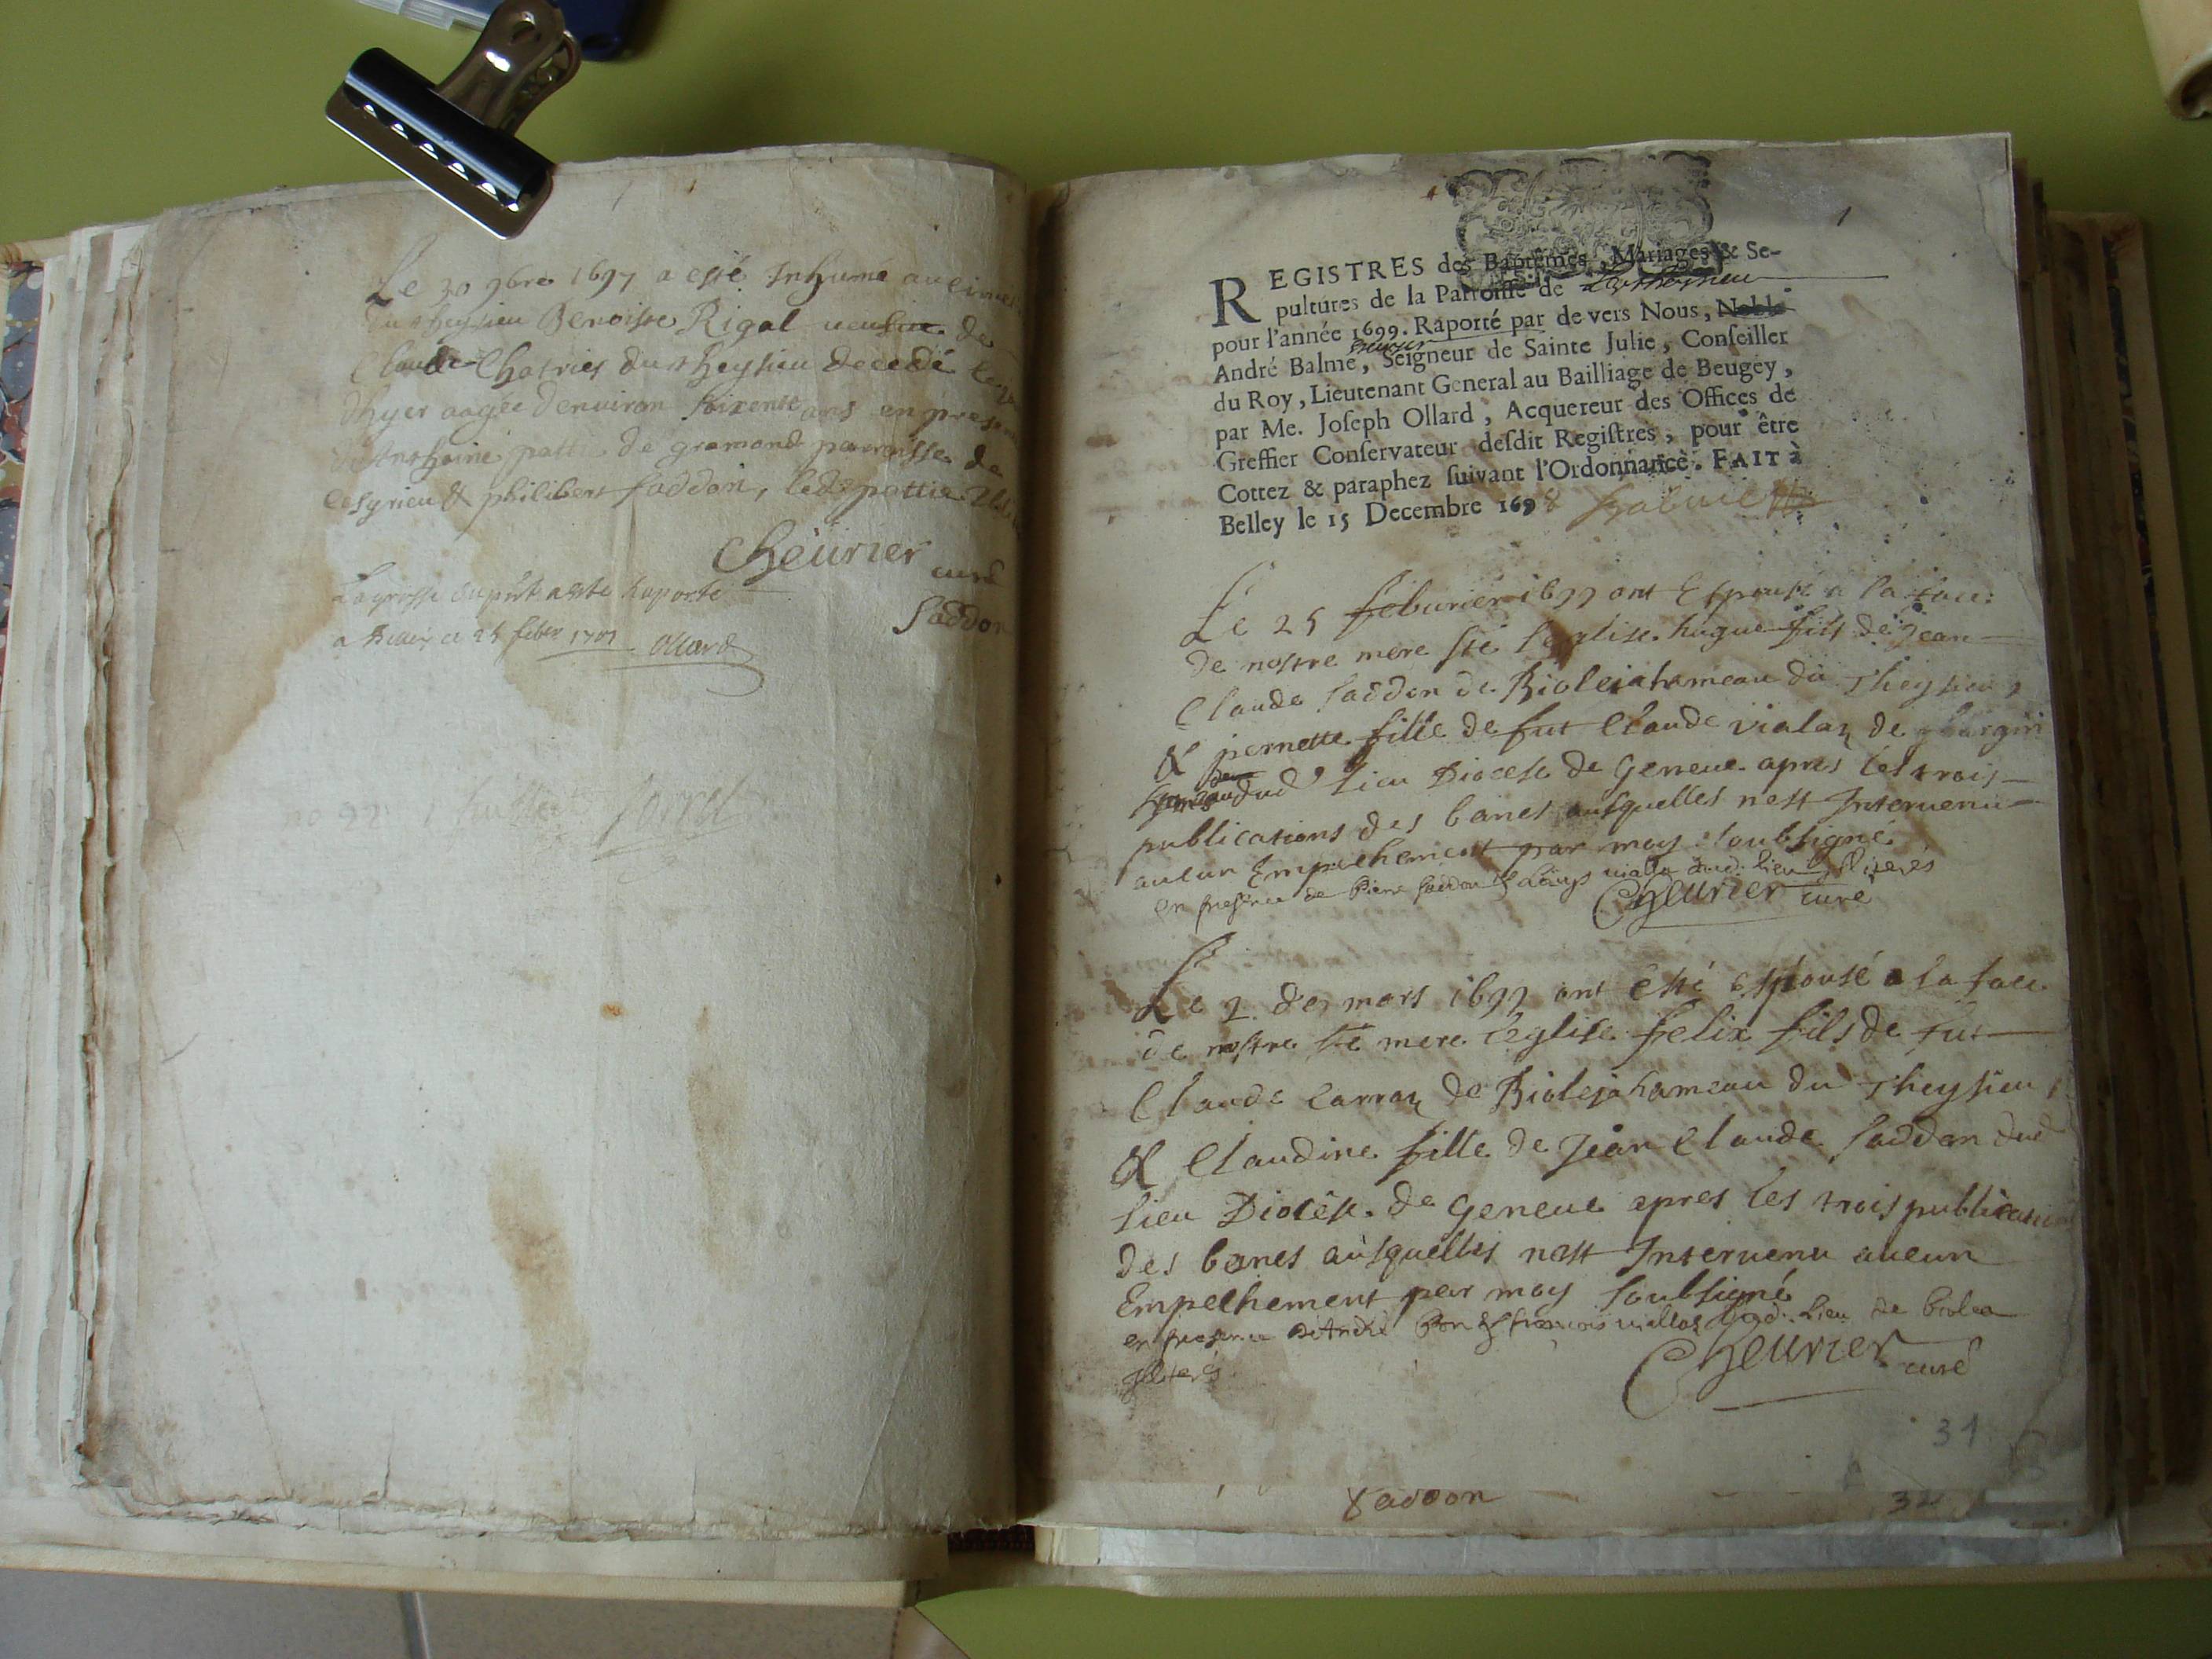 Le 30 9bre 1697 a esté Inhumé au
du theysieu Benoiste Rigal de
Claude Chatries du theysieu decedé
dhyer aagée denuiron soixente ans en
de Anthoine pattie de gramond parroisse de
cesyrieu & philibert saddon, led. pattie
Cheurier curé
La grosse a esté raporté
a ce 25 1701 Ollard
Saddon
1
REGISTRES des Baptêmes, Mariages & Se-
pultures de la Parroisse de
pour l'année 1699. Raporté par de vers Nous, Noble
André Balme, Seigneur de Sainte Julie, Conseiller
du Roy, Lieutenant General au Bailliage de Beugey,
par Me. Joseph Ollard, Acquereur des Offices de
Greffier Conservateur desdit Registres, pour être
Cottez & paraphez suivant l'Ordonnance. FAIT à
Belley le 15 Decembre 1698
Le 25 feburier 1699 ont Espousé a la face
de nostre mere ste l'eglise hugue fils de Jean
Claude saddon de Rioleja hameau du theysieu
& pernette fille de fut Claude vialaz de
dud lieu Diocese de Geneue apres les trois
publications des bancs ausquelles nest Interuenu
aucun Empechement par moy soubsigné
en presence de Pierre saddon & Louys dud. lieu
Cheurier curé
Le 2 de mars 1699 ont esté espousé a la face
de nostre ste mere l'eglise felix fils de fut
Claude Carraz de Rioleja hameau du theysieu
& Claudine fille de Jean Claude saddon dud
lieu Diocese de Geneue apres les trois publications
des bancs ausquelles nest Interuenu aucun
Empechement par moy soubsigné
en presence de André Bon & françois viallaz dud. lieu de
Cheurier curé
31
saddon
32